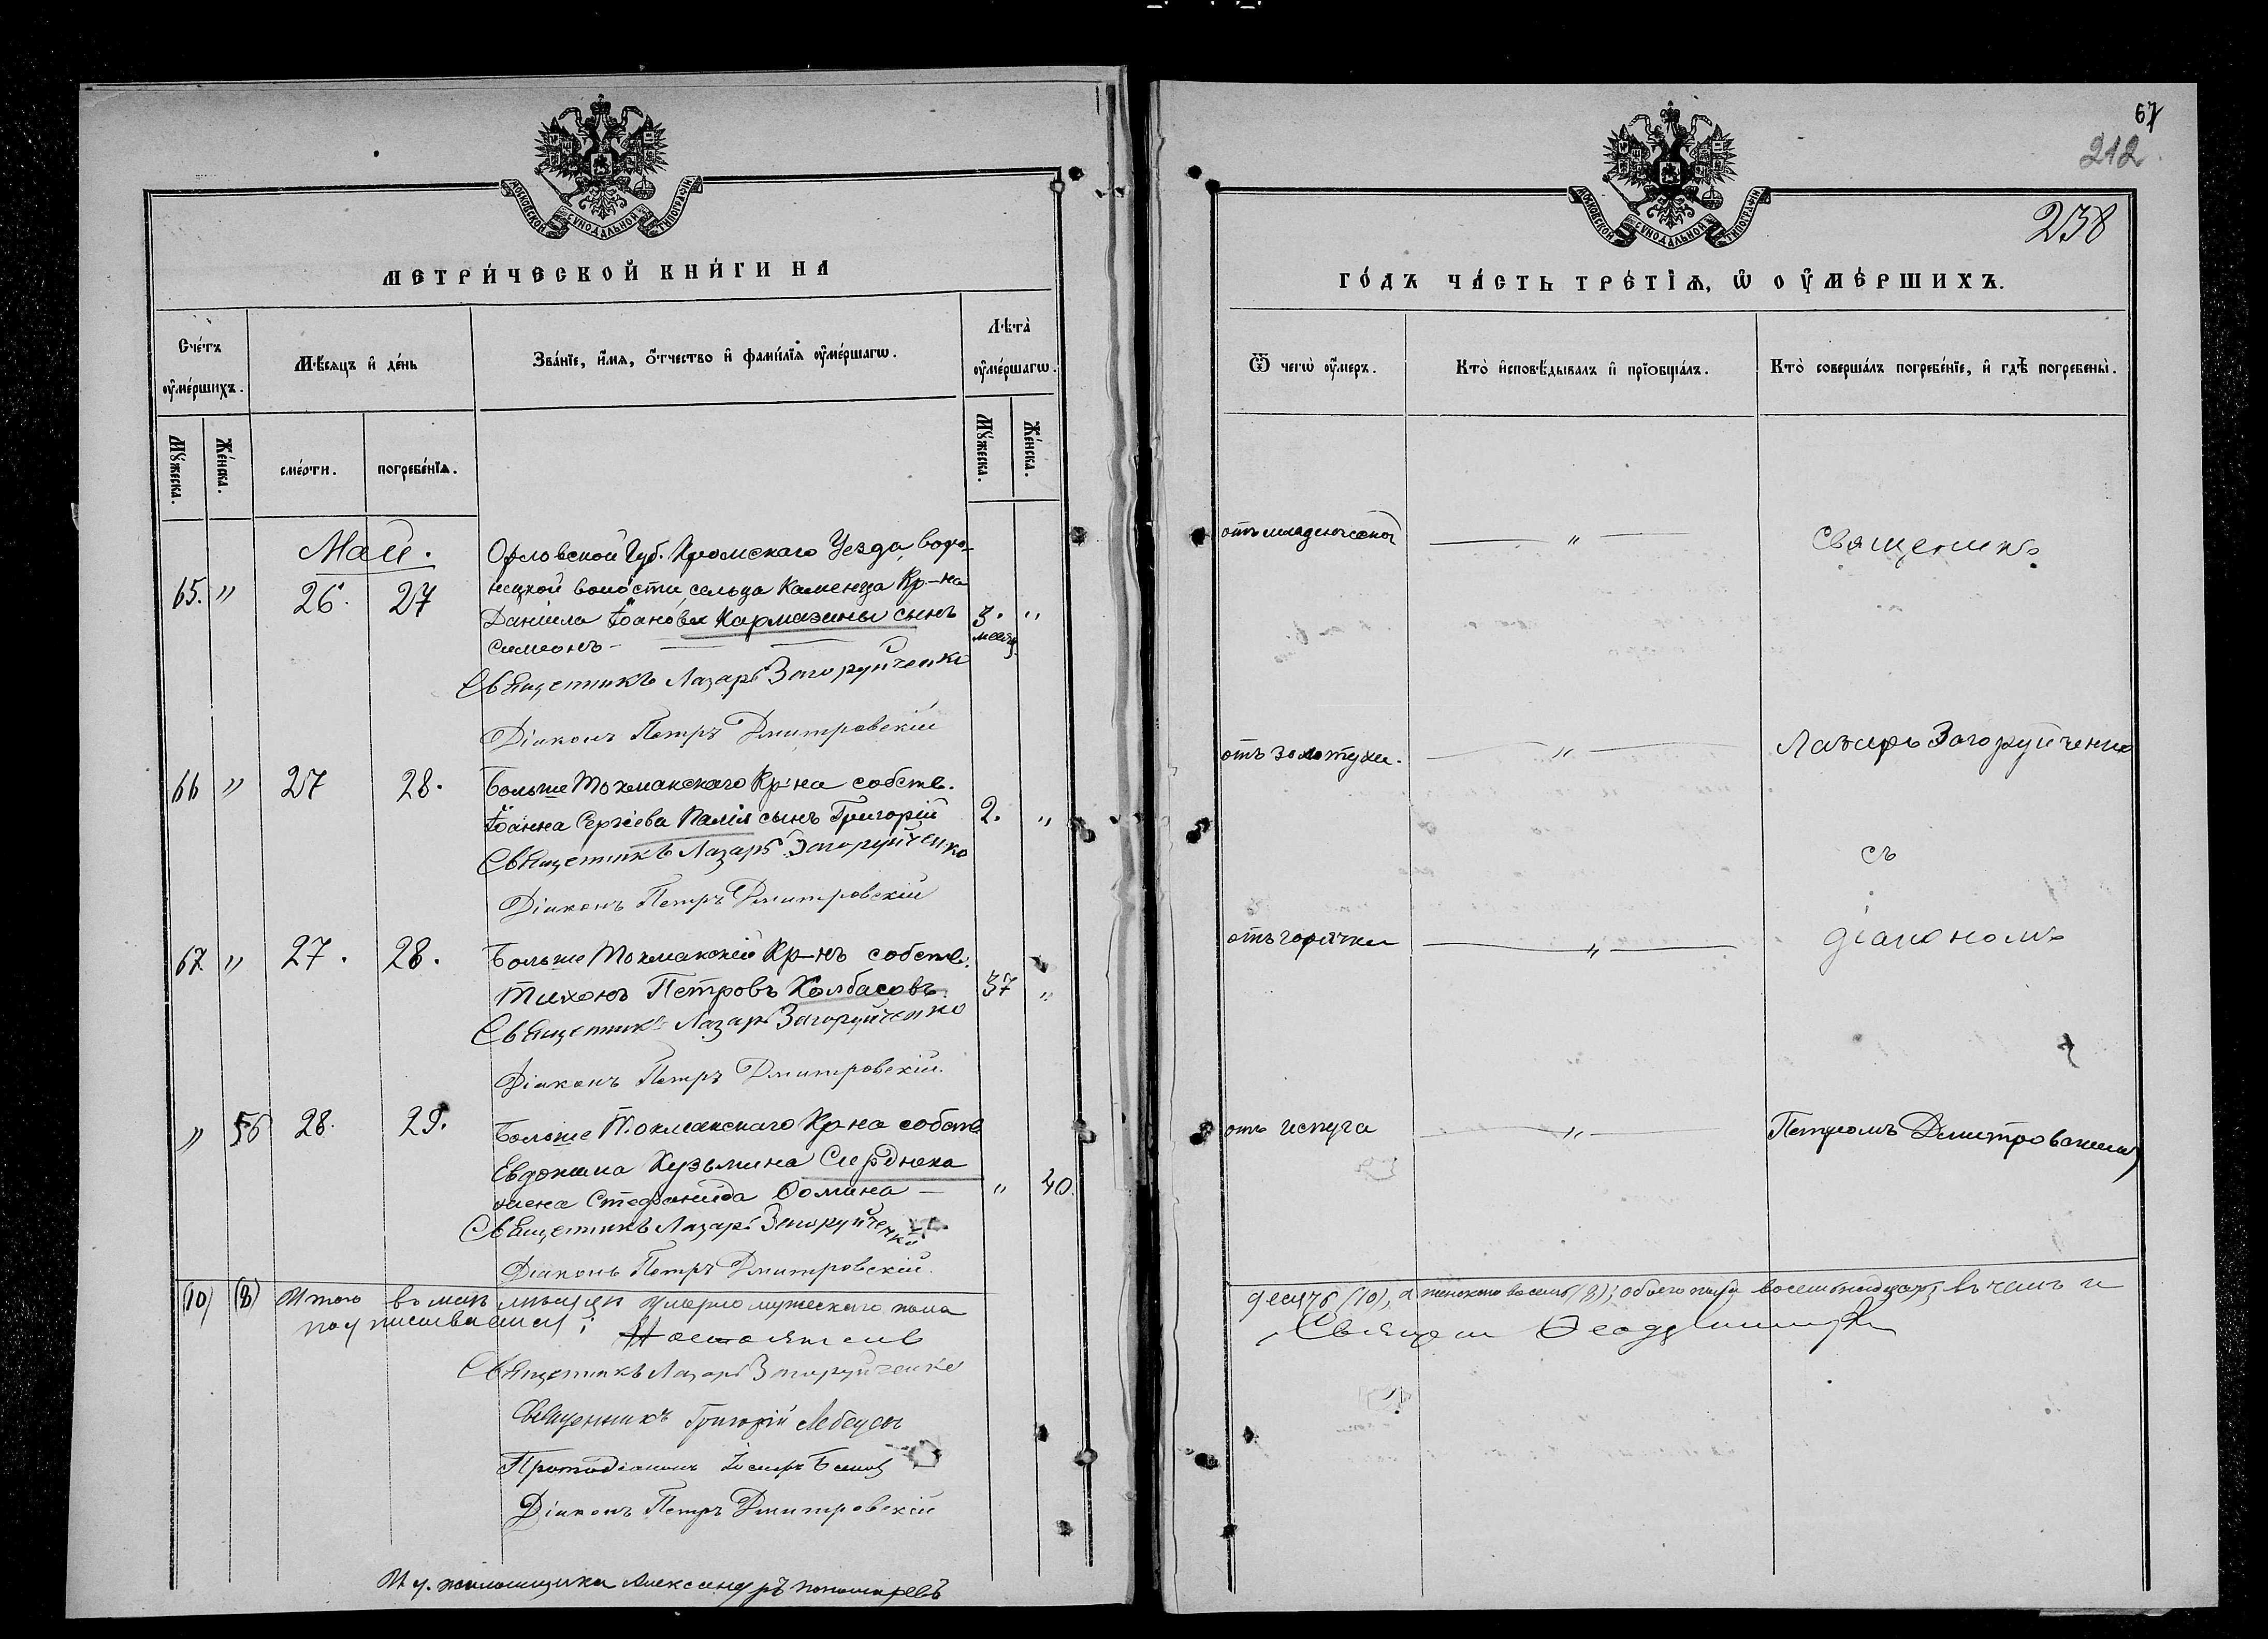 МОСКОВСКОЙ СѴНОДАЛЬНОЙ ТИПОГРАФІИ
МЕТРИ́ЧЕСКОЙ КНИ́ГИ НА
Сче́тъ оу҆ме́ршихъ.
Мѣ́сяцъ и҆ де́нь
Зва́нїе, и҆́мя, ѻ҆́тчество и҆ фами́лїѧ оу҆ме́ршагѡ.
Лѣ́та оу҆ме́ршагѡ.
Мꙋ́жеска.
Же́нска.
сме́рти.
погребе́нїѧ.
Мꙋ́жеска.
Же́нска.
Май.
65. " 26. 27
Орловской Губ. Кромскаго Уезда,
волости, сельца Каменца Кр-на
Даніила Іоанова Кармазины сынъ
Симеонъ –
3. месяц. "
Священникъ Лазарь Загоруйченко
Діаконъ Петръ Дмитровскій
66 " 27 28.
Больше Токмакскаго Кр-на собств.
Іоанна Сергіева Палія сынъ Григорій
2. "
Священникъ Лазарь Загоруйченко
Діаконъ Петръ Дмитровскій
67 " 27. 28.
Больше Токмакскій Кр-нъ собств.
Тихонъ Петровъ Колбасовъ.
37 "
Священникъ Лазарь Загоруйченко
Діаконъ Петръ Дмитровскій.
" 56 28. 29.
Больше Токмакскаго Кр-на собств
Евдокима Кузьмина Сердюка
жена Стефанида Фомина –
" 40.
Священникъ Лазарь Загоруйченко
Діаконъ Петръ Дмитровскій.
(10) (8) Итого въ маѣ мѣсяцѣ умерло мужескаго пола
подписываемся:
Священникъ Лазарь Загоруйченко
Священникъ Григорій
Протодіаконъ
Діаконъ Петръ Дмитровскій
Александръ Пономаревъ
67
212
238
МОСКОВСКОЙ СѴНОДАЛЬНОЙ ТИПОГРАФІИ
ГО́ДЪ ЧА́СТЬ ТРЕ́ТІѦ, Ѡ҆ ОУ҆МЕ́РШИХЪ.
Ѿ чегѡ̀ оу҆́меръ.
Кто̀ и҆сповѣ́дывалъ и҆ прїобща́лъ.
Кто̀ соверша́лъ погребе́нїе, и҆ гдѣ̀ погребены̀.
отъ младенческой
"
Священникъ
отъ золотухи.
"
Лазарь Загоруйченко
съ
отъ горячки
"
діакономъ
отъ испуга
"
Петромъ Дмитровскимъ
десять (10), а женскаго восемь (8); обоего пола восемнадцать, въ чемъ и